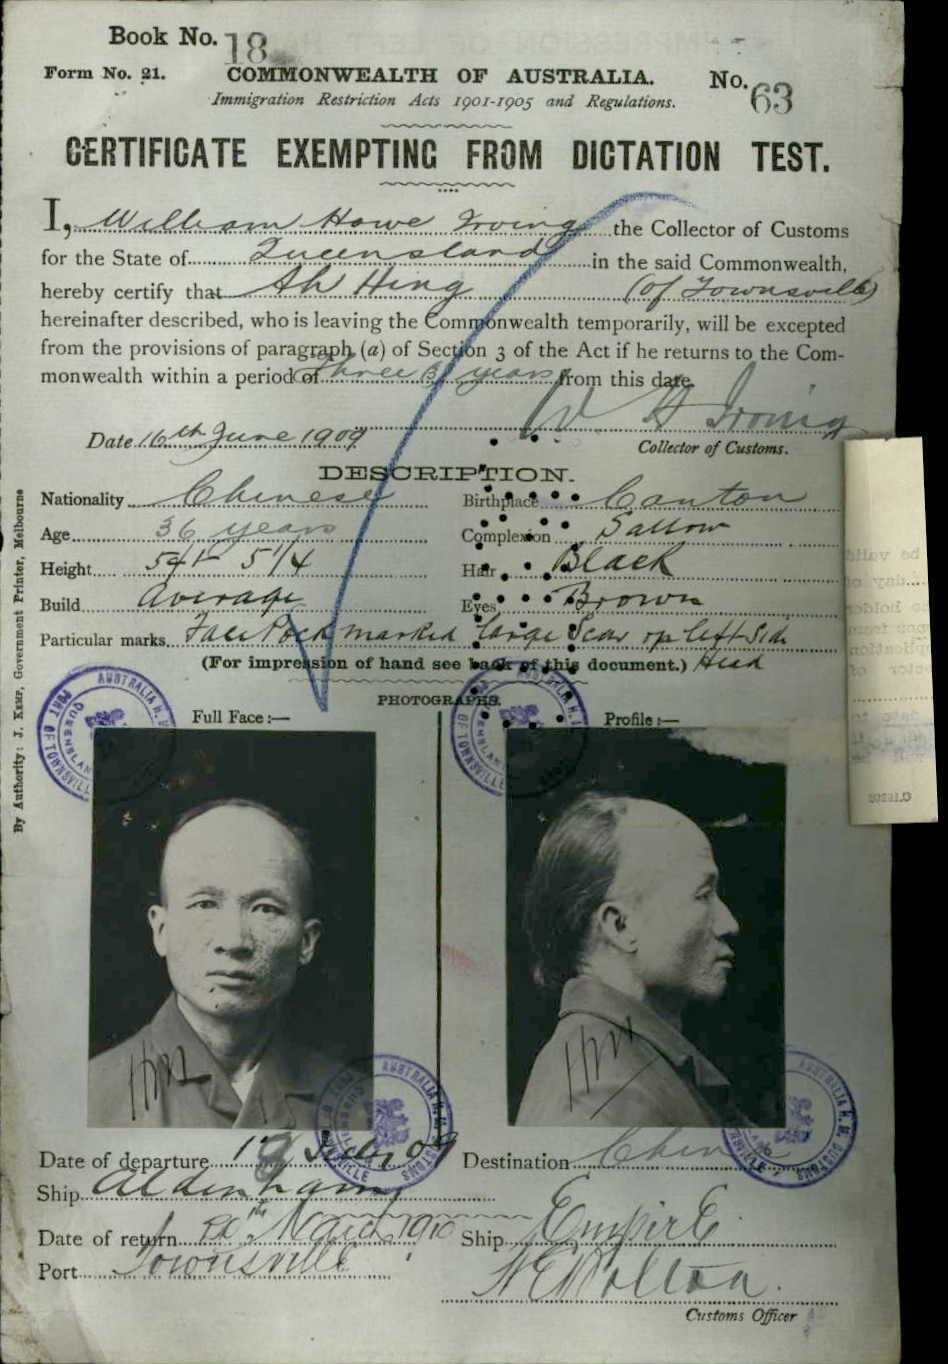 Book No. 18
Form No. 21. COMMONWEALTH OF AUSTRALIA. No. 63
Immigration Restriction Acts 1901-1905 and Regulations.
CERTIFICATE EXEMPTING FROM DICTATION TEST.
I, William Howe Irving the Collector of Customs
for the State of Queensland in the said Commonwealth,
hereby certify that Ah Hing (of Townsville)
hereinafter described, who is leaving the Commonwealth temporarily, will be excepted
from the provisions of paragraph (a) of Section 3 of the Act if he returns to the Com-
monwealth within a period of three (3) years from this date.
W H Irving
Date 16th June 1909 Collector of Customs.
DESCRIPTION.
Nationality Chinese Birthplace Canton
Age 36 years Complexion Sallow
Height 5ft 5 1/4 Hair Black
Build Average Eyes Brown
Particular marks Face Pock marked large Scar left Side
(For impression of hand see back of this document.) Head
PHOTOGRAPHS.
Full Face :— Profile :—
By Authority: J. KEMP, Government Printer, Melbourne
Date of departure 09 Destination China
Ship Aldenham
Date of return March 1910 Ship Empire
Port Townsville
Customs Officer